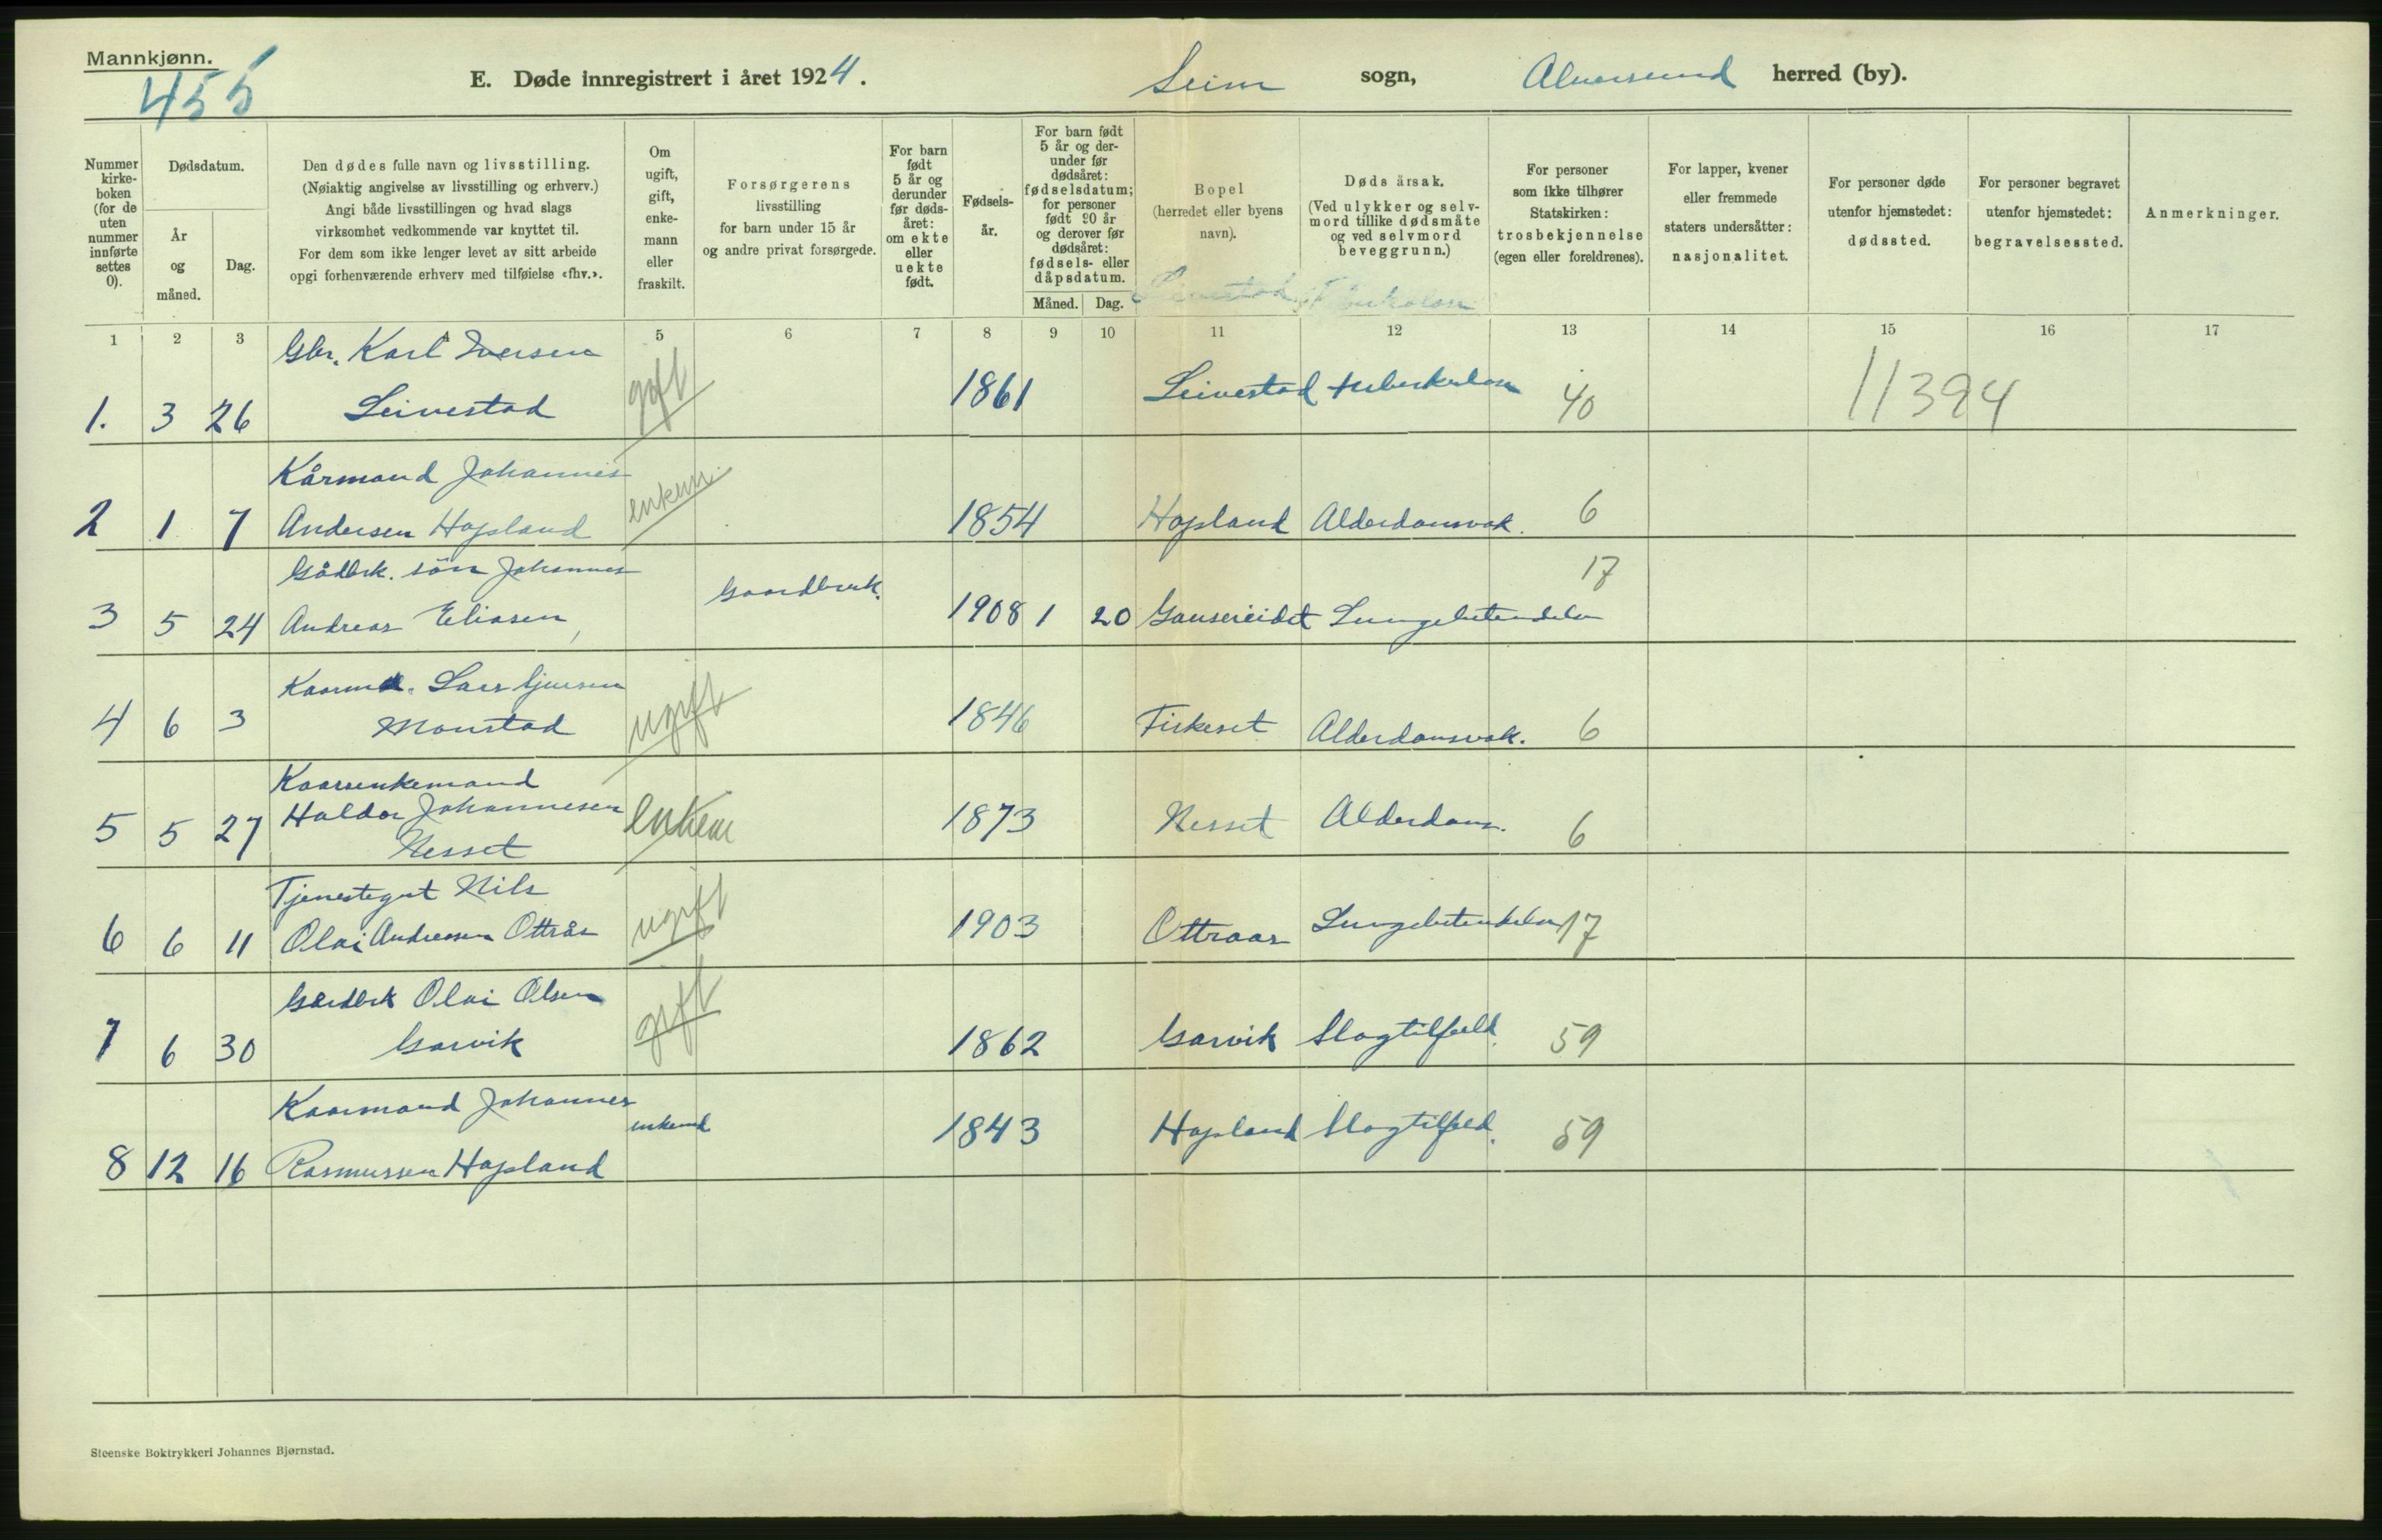 Mannkjønn.
455
E. Døde innregistrert i året 1924.
Seim sogn, Alversund herred (by).
Nummer kirke-boken (for de uten nummer innførte settes 0).
Dødsdatum.
År og måned.
Dag.
Den dødes fulle navn og livsstilling.
(Nøiaktig angivelse av livsstilling og erhverv.)
Angi både livsstillingen og hvad slags
virksomhet vedkommende var knyttet til.
For dem som ikke lenger levet av sitt arbeide
opgi forhenværende erhverv med tilføielse «fhv.».
Om ugift, gift, enke-mann eller fraskilt.
Forsørgerens
livsstilling
for barn under 15 år
og andre privat forsørgede.
For barn født 5 år og derunder før døds-året: om ekte eller uekte født.
Fødsels-år.
For barn født 5 år og der-under før dødsåret: fødselsdatum; for personer født 90 år og derover før dødsåret: fødsels- eller dåpsdatum.
Måned. Dag.
Bopel
(herredet eller byens
navn).
Døds årsak.
(Ved ulykker og selv-
mord tillike dødsmåte
og ved selvmord
beveggrunn.)
For personer
som ikke tilhører
Statskirken:
trosbekjennelse
(egen eller foreldrenes).
For lapper, kvener
eller fremmede
staters undersåtter:
nasjonalitet.
For personer døde
utenfor hjemstedet:
dødssted.
For personer begravet
utenfor hjemstedet:
begravelsessted.
Anmerkninger.
1 2 3 5 6 7 8 9 10 11 12 13 14 15 16 17
Gbr. Karl Iversen
1. 3 26 Leivestad gift 1861 Leivestad tuberkulose 40 11394
Kårmand Johannes
2 1 7 Andersen Hopland enkem. 1854 Hopland Alderdomsvak. 6
Gådbrk. sön Johannes
3 5 24 Andreas Eliasen, Gaardbruk. 1908 1 20 Gausereidet Lungebetendelse 17
Kaarmd. Lars
4 6 3 Monstad ugift 1846 Fiskeset Alderdomsvak. 6
Kaarenkemand
5 5 27 Haldor Johannesen enkem 1873 Nesset Alderdoms. 6
Nesset
Tjenestegut Nils
6 6 11 Olai Andressen Ottrås ugift 1903 Ottraas Lungebetendelse 17
Gårdbrk Olai Olsen
7 6 30 Garvik gift 1862 Garvik Slagtilfæld. 59
Kaarmand Johannes
8 12 16 Rasmussen Hopland enkemd 1843 Hopland Slagtilfeld. 59
Steenske Boktrykkeri Johannes Bjørnstad.